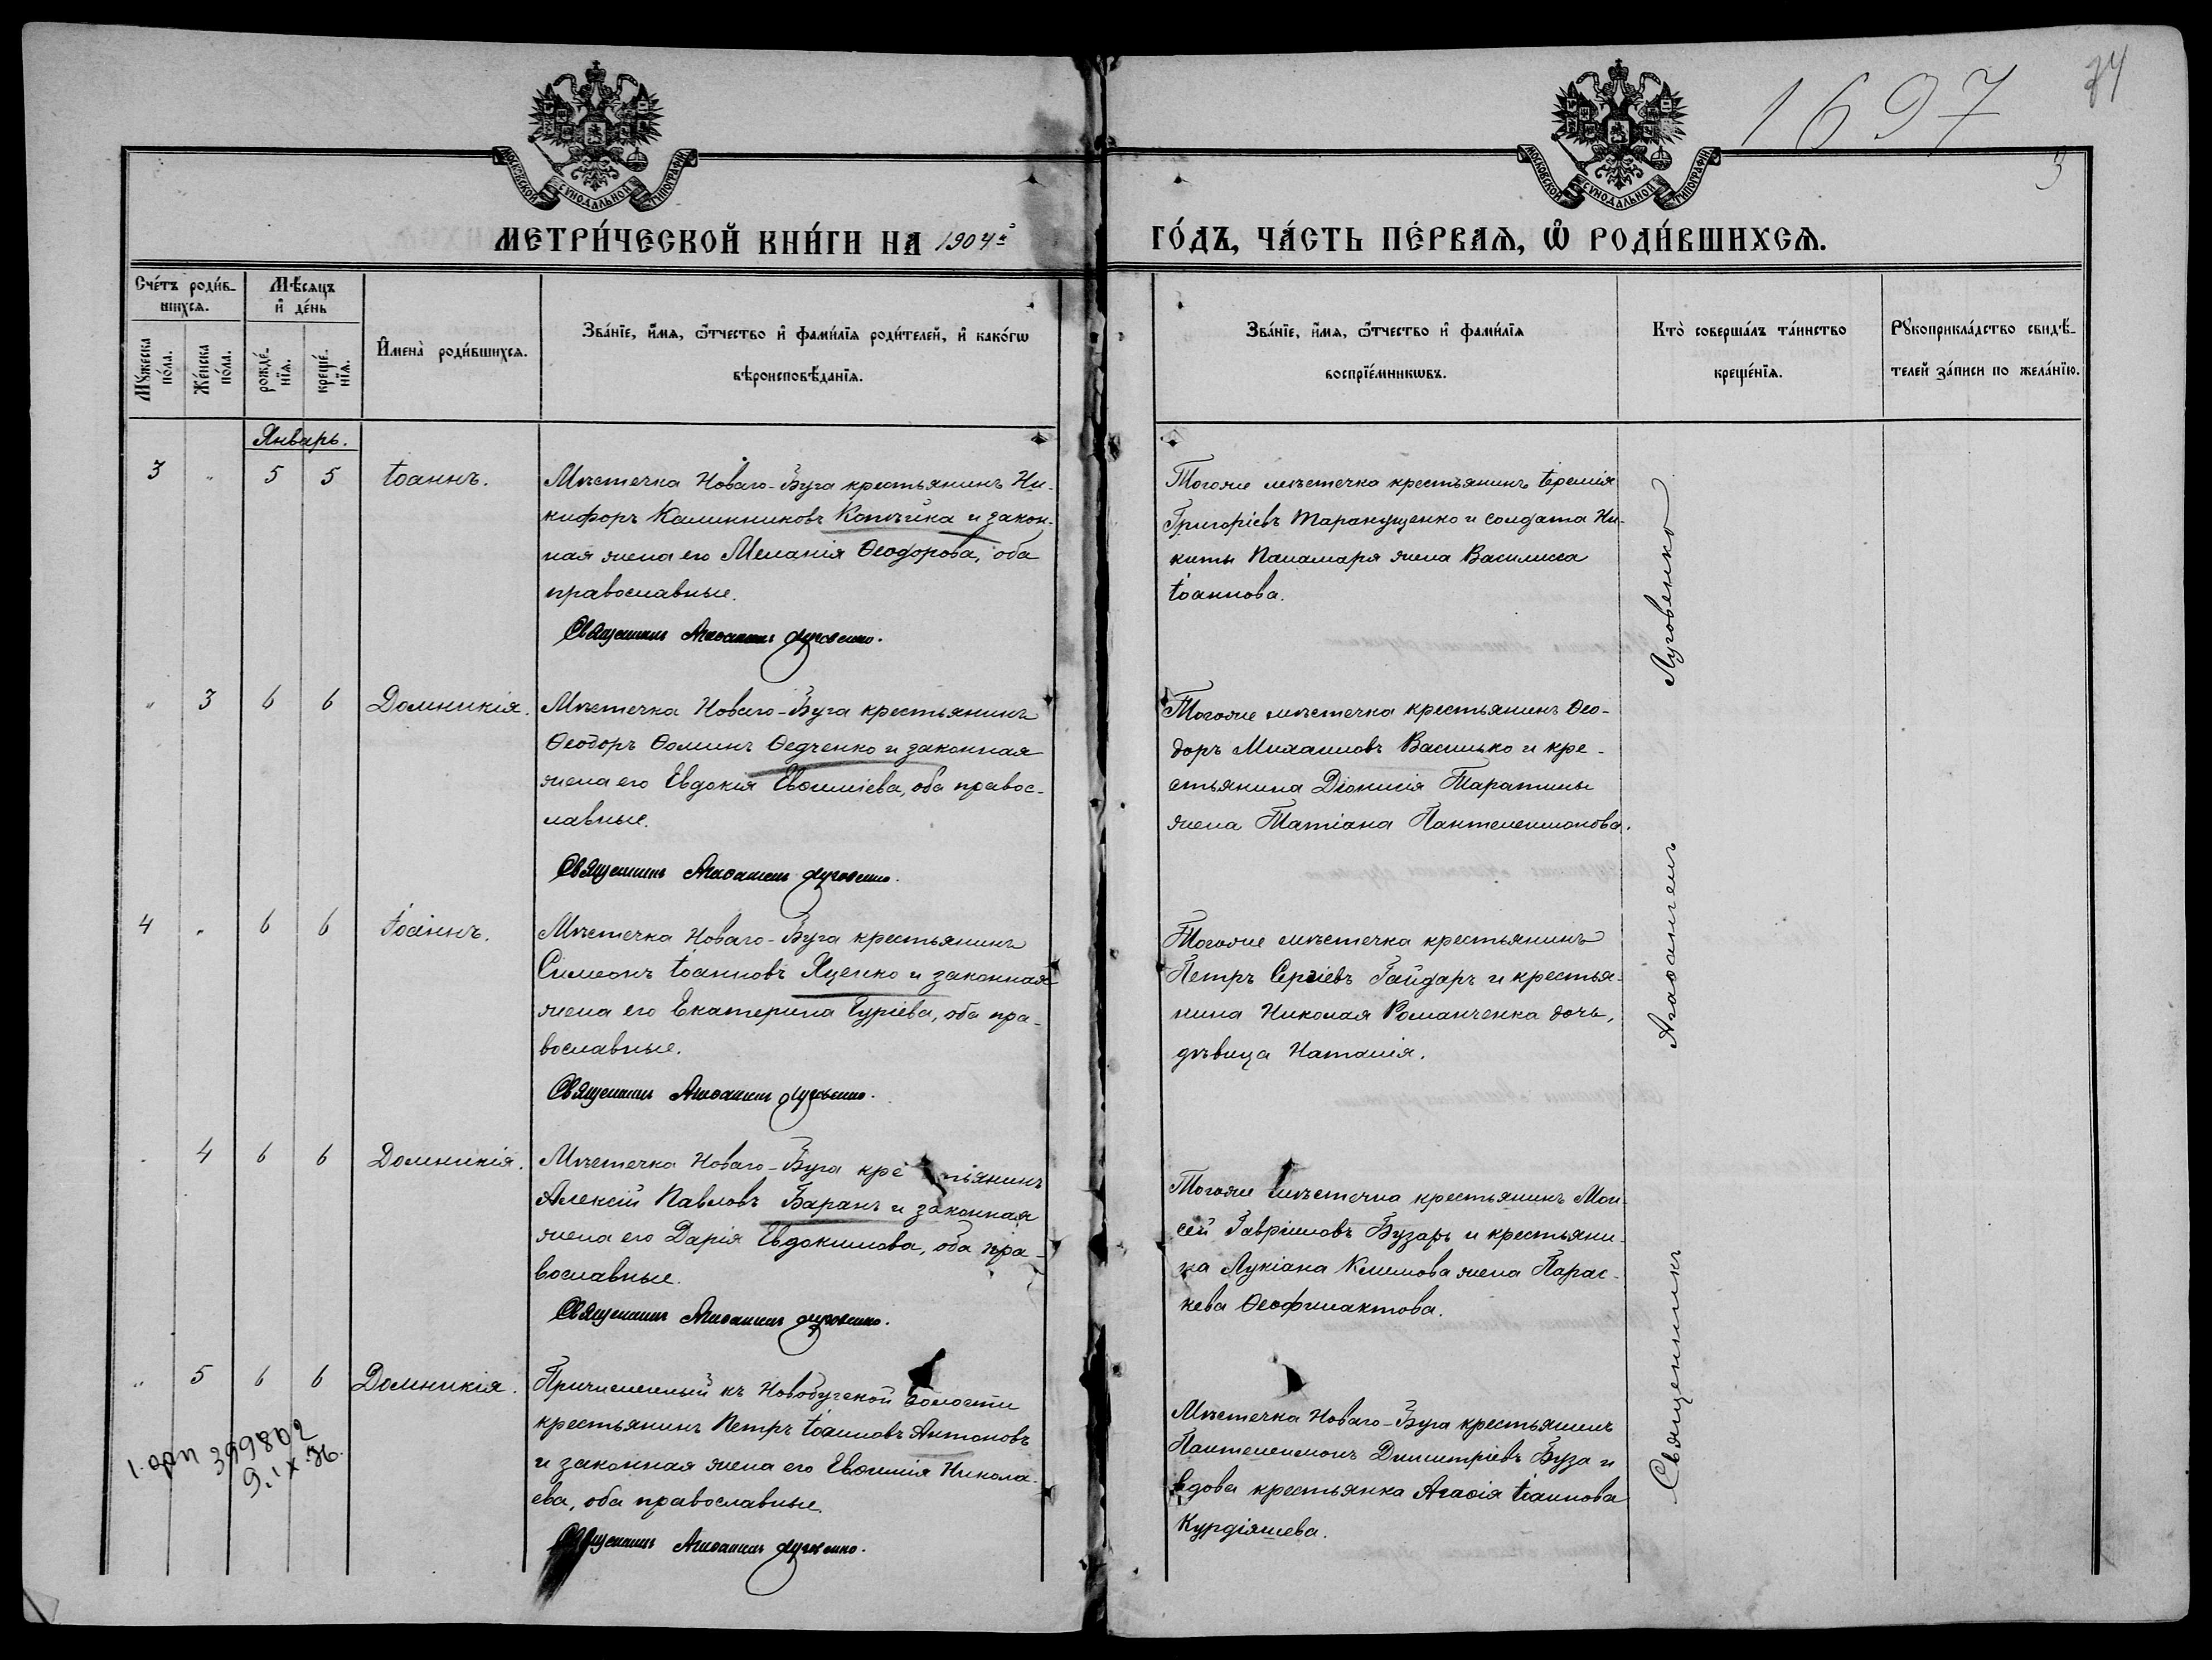 1697
74
3
МОСКОВСКОЙ СѴНОДАЛЬНОЙ ТИПОГРАФІИ.
МОСКОВСКОЙ СѴНОДАЛЬНОЙ ТИПОГРАФІИ.
МЕТРИ́ЧЕСКОЙ КНИ́ГИ НА 1904й
ГО́ДЪ, ЧА́СТЬ ПЕ́РВАѦ, Ѡ҆ РОДИ́ВШИХСѦ.
Сче́тъ роди́в-
шихсѧ.
Мꙋ́жеска по́ла.
Же́нска по́ла.
Мѣ́сѧцъ
и҆ де́нь
рожде́-нїѧ.
креще́-нїѧ.
И҆мена̀ роди́вшихсѧ.
Зва́нїе, и҆́мѧ, ѻ҆́тчество и҆ фами́лїѧ роди́телей, и҆ како́гѡ
вѣроисповѣ́данїѧ.
Зва́нїе, и҆́мѧ, ѻ҆́тчество и҆ фами́лїѧ
воспрїе́мникѡвъ.
Кто̀ соверша́лъ та́инство
креще́нїѧ.
Рꙋкоприкла́дство свидѣ́-
телей за́писи по жела́нїю.
Январь.
3 " 5 5 Іоаннъ.
Мѣстечка Новаго-Буга крестьянинъ Ни-
кифоръ Калинниковъ Копѣйка и закон-
ная жена его Меланія Ѳеодорова, оба
православные.
Священникъ Агаѳангелъ Луговенко.
Тогоже мѣстечка крестьянинъ Іеремія
Григоріевъ Таранущенко и солдата Ни-
киты Паламаря жена Василисса
Іоаннова.
" 3 6 6 Домникія.
Мѣстечка Новаго-Буга крестьянинъ
Ѳеодоръ Ѳоминъ Ѳедченко и законная
жена его Евдокія Евѳиміева, оба правос-
лавные.
Священникъ Агаѳангелъ Луговенко.
Тогоже мѣстечка крестьянинъ Ѳео-
доръ Михаиловъ Василько и кре-
стьянина Діонисія Таратины
жена Татіана Пантелеимонова.
4 " 6 6 Іоаннъ.
Мѣстечка Новаго-Буга крестьянинъ
Симеонъ Іоанновъ Яценко и законная
жена его Екатерина Гуріева, оба пра-
вославные.
Священникъ Агаѳангелъ Луговенко.
Тогоже мѣстечка крестьянинъ
Петръ Сергіевъ Гайдаръ и крестья-
нина Николая Романченка дочь,
дѣвица Наталія.
" 4 6 6 Домникія.
Мѣстечка Новаго-Буга кре тьянинъ
Алексій Павловъ Баранъ и законная
жена его Дарія Евдокимова, оба пра-
вославные.
Священникъ Агаѳангелъ Луговенко.
Тогоже мѣстечка крестьянинъ Мои-
сей Гавріиловъ Бузарь и крестьяни-
на Лукіана Климова жена Парас-
кева Ѳеофилактова.
" 5 6 6 Домникія.
Причисленный къ Новобугской волости
крестьянинъ Петръ Іоанновъ Антоновъ
и законная жена его Евѳимія Никола-
ева, оба православные.
Священникъ Агаѳангелъ Луговенко.
Мѣстечка Новаго-Буга крестьянинъ
Пантелеимонъ Димитріевъ Буза и
вдова крестьянка Агаѳія Іоаннова
Курдіяшева.
Священникъ Агаѳангелъ Луговенко
399802
9.IX.36.